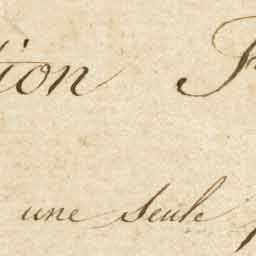 tion F
une seule p